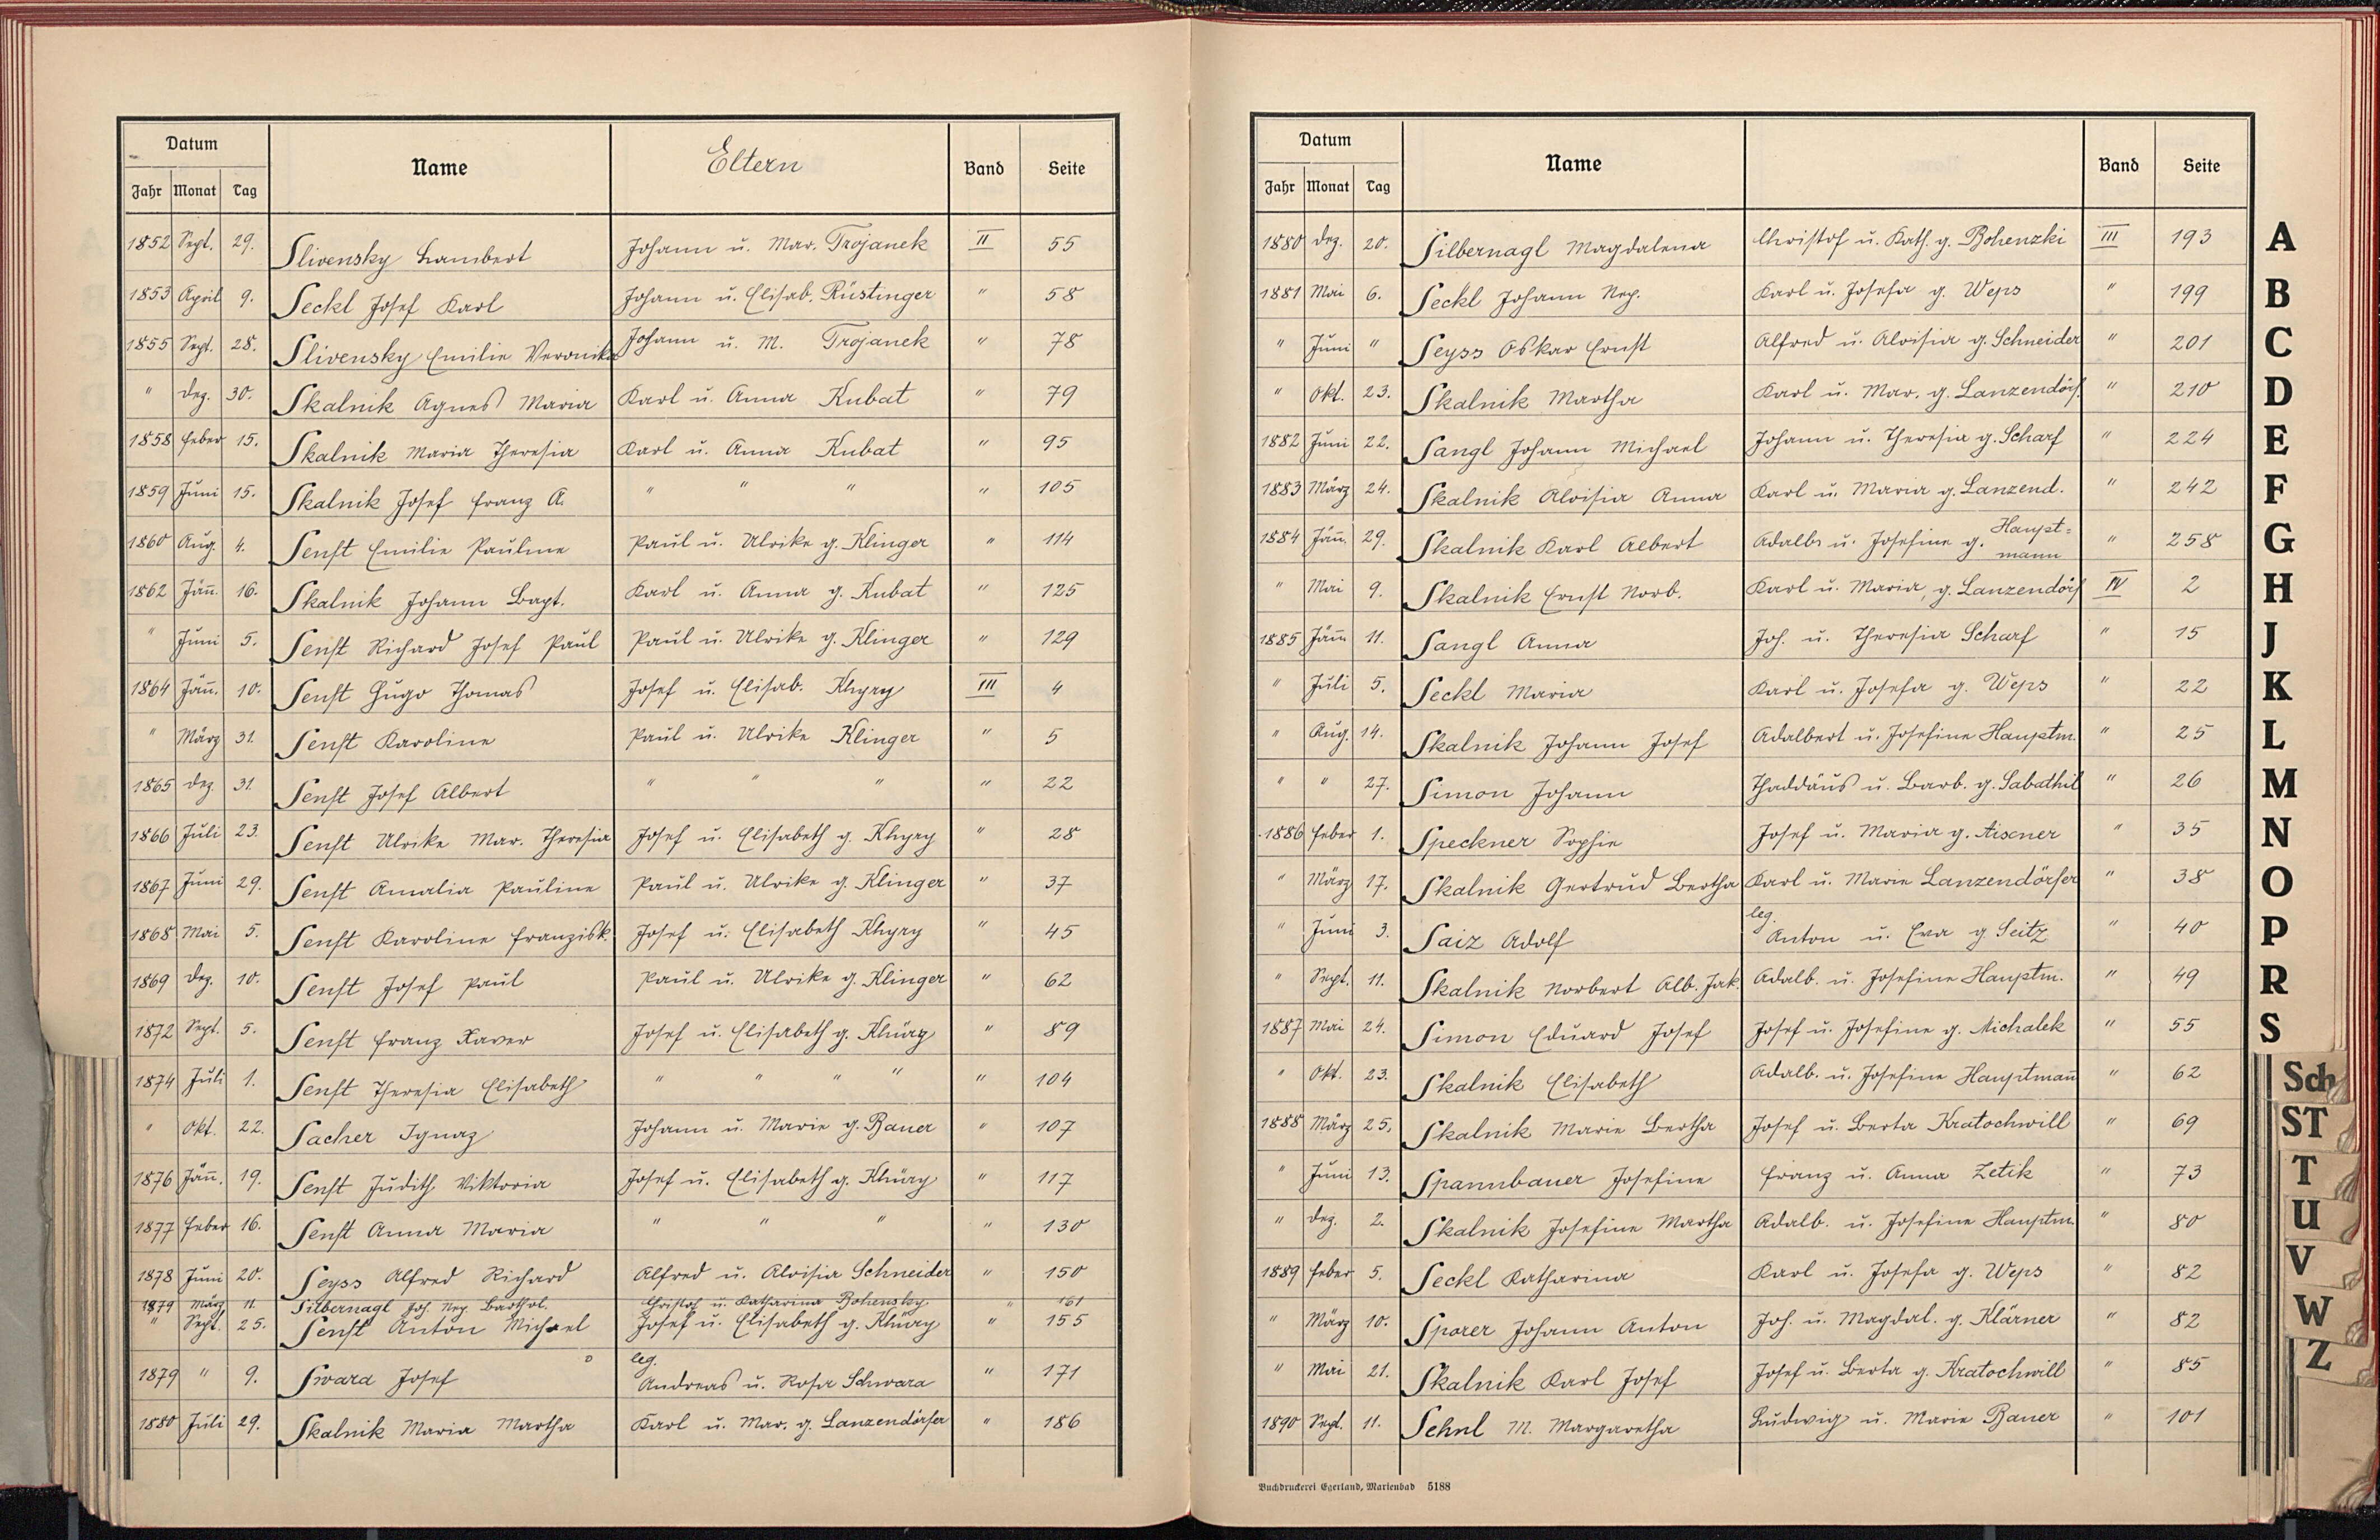 Datum Name Eltern Band Seite
Jahr Monat Tag
1852 Sept. 29. Slivensky Lambert Johann u. Mar. Trojanek II 55
1853 April 9. Seckl Josef Karl Johann u. Elisab. Rüstinger " 58
1855 Sept. 28. Slivensky Emilie Veronika Johann u. M. Trojanek " 78
" Dez. 30. Skalnik Agnes Maria Karl u. Anna Kubat " 79
1858 Feber 15. Skalnik Maria Theresia Karl u. Anna Kubat " 95
1859 Juni 15. Skalnik Josef Franz A. " " " " 105
1860 Aug. 4. Senft Emilie Pauline Paul u. Ulrike g. Klinger " 114
1862 Jän̄. 16. Skalnik Johann Bapt. Karl u. Anna g. Kubat " 125
" Juni 5. Senft Richard Josef Paul Paul u. Ulrike g. Klinger " 129
1864 Jän̄. 10. Senft Hugo Thomas Josef u. Elisab. III 4
" März 31. Senft Karoline Paul u. Ulrike Klinger " 5
1865 Dez 31. Senft Josef Albert " " " " 22
1866 Juli 23. Senft Ulrike Mar. Theresia Josef u. Elisabeth g. " 28
1867 Juni 29. Senft Amalia Pauline Paul u. Ulrike g. Klinger " 37
1868 Mai 5. Senft Karoline Franzisk. Josef u. Elisabeth " 45
1869 Dez. 10. Senft Josef Paul Paul u. Ulrike g. Klinger " 62
1872 Sept. 5. Senft Franz Xaver Josef u. Elisabeth g. " 89
1874 Juli 1. Senft Theresia Elisabeth " " " " " 104
" Okt. 22. Sacher Ignaz Johann u. Marie g. Bauer " 107
1876 Jän̄. 19. Senft Judith Viktoria Josef u. Elisabeth g. " 117
1877 Feber 16. Senft Anna Maria " " " " 130
1878 Juni 20. Seyss Alfred Richard Alfred u. Aloisia Schneider " 150
1879 März 11. Silbernagl Joh. Nep. Barthol. Christof u. Katharina Bohensky " 161
" Sept. 25. Senft Anton Michael Josef u. Elisabeth g. " 155
1879 " 9. Swara Josef leg. Andreas u. Rosa Schwara " 171
1880 Juli 29. Skalnik Maria Martha Karl u. Mar. g. Lanzendörfer " 186
Datum Name Band Seite
Jahr Monat Tag
1880 Dez. 20. Silbernagl Magdalena Christof u. Kath. g. Bohenzki III 193
1881 Mai 6. Seckl Johann Nep. Karl u. Josefa g. Weps " 199
" Juni " Seyss Oskar Ernst Alfred u. Aloisia g. Schneider " 201
" Okt. 23. Skalnik Martha Karl u. Mar. g. Lanzendörf. " 210
1882 Juni 22. Sangl Johann Michael Johann u. Theresia g. Scharf " 224
1883 März 24. Skalnik Aloisia Anna Karl u. Maria g. Lanzend. " 242
1884 Jän̄. 29. Skalnik Karl Albert Adalb. u. Josefine g. Haupt=mann " 258
" Mai 9. Skalnik Ernst Norb. Karl u. Maria, g. Lanzendörf IV 2
1885 Jän̄. 11. Sangl Anna Joh. u. Theresia Scharf " 15
" Juli 5. Seckl Maria Karl u. Josefa g. Weps " 22
" Aug. 14. Skalnik Johann Josef Adalbert u. Josefine Hauptm. " 25
" " 27. Simon Johann Thaddäus u. Barb. g. Sabathil " 26
1886 Feber 1. Speckner Sophie Josef u. Maria g. Aisener " 35
" März 17. Skalnik Gertrud Bertha Karl u. Marie Lanzendörfer " 38
" Juni 3. Saiz Adolf leg. Anton u. Eva g Seitz " 40
" Sept. 11. Skalnik Norbert Alb. Jak. Adalb. u. Josefine Hauptm. " 49
1887 Mai 24. Simon Eduard Josef Josef u. Josefine g. Michalek " 55
" Okt. 23. Skalnik Elisabeth Adalb. u. Josefine Hauptman̄ " 62
1888 März 25. Skalnik Marie Bertha Josef u. Berta Kratochwill " 69
" Juni 13. Spannbauer Josefine Franz u. Anna Zetik " 73
" Dez. 2. Skalnik Josefine Martha Adalb. u. Josefine Hauptm. " 80
1889 Feber 5. Seckl Katharina Karl u. Josefa g. Weps " 82
" März 10. Sporer Johann Anton Joh. u. Magdal. g. Klärner " 82
" Mai 21. Skalnik Karl Josef Josef u. Berta g. Kratochwill " 85
1890 Sept. 11. Sehnl M. Margaretha Ludwig u. Marie Bauer " 101
Buchdruckerei Egerland, Marienbad 5188
A
B
C
D
E
F
G
H
J
K
L
M
N
O
P
R
S
Sch
ST
T
U
V
W
Z